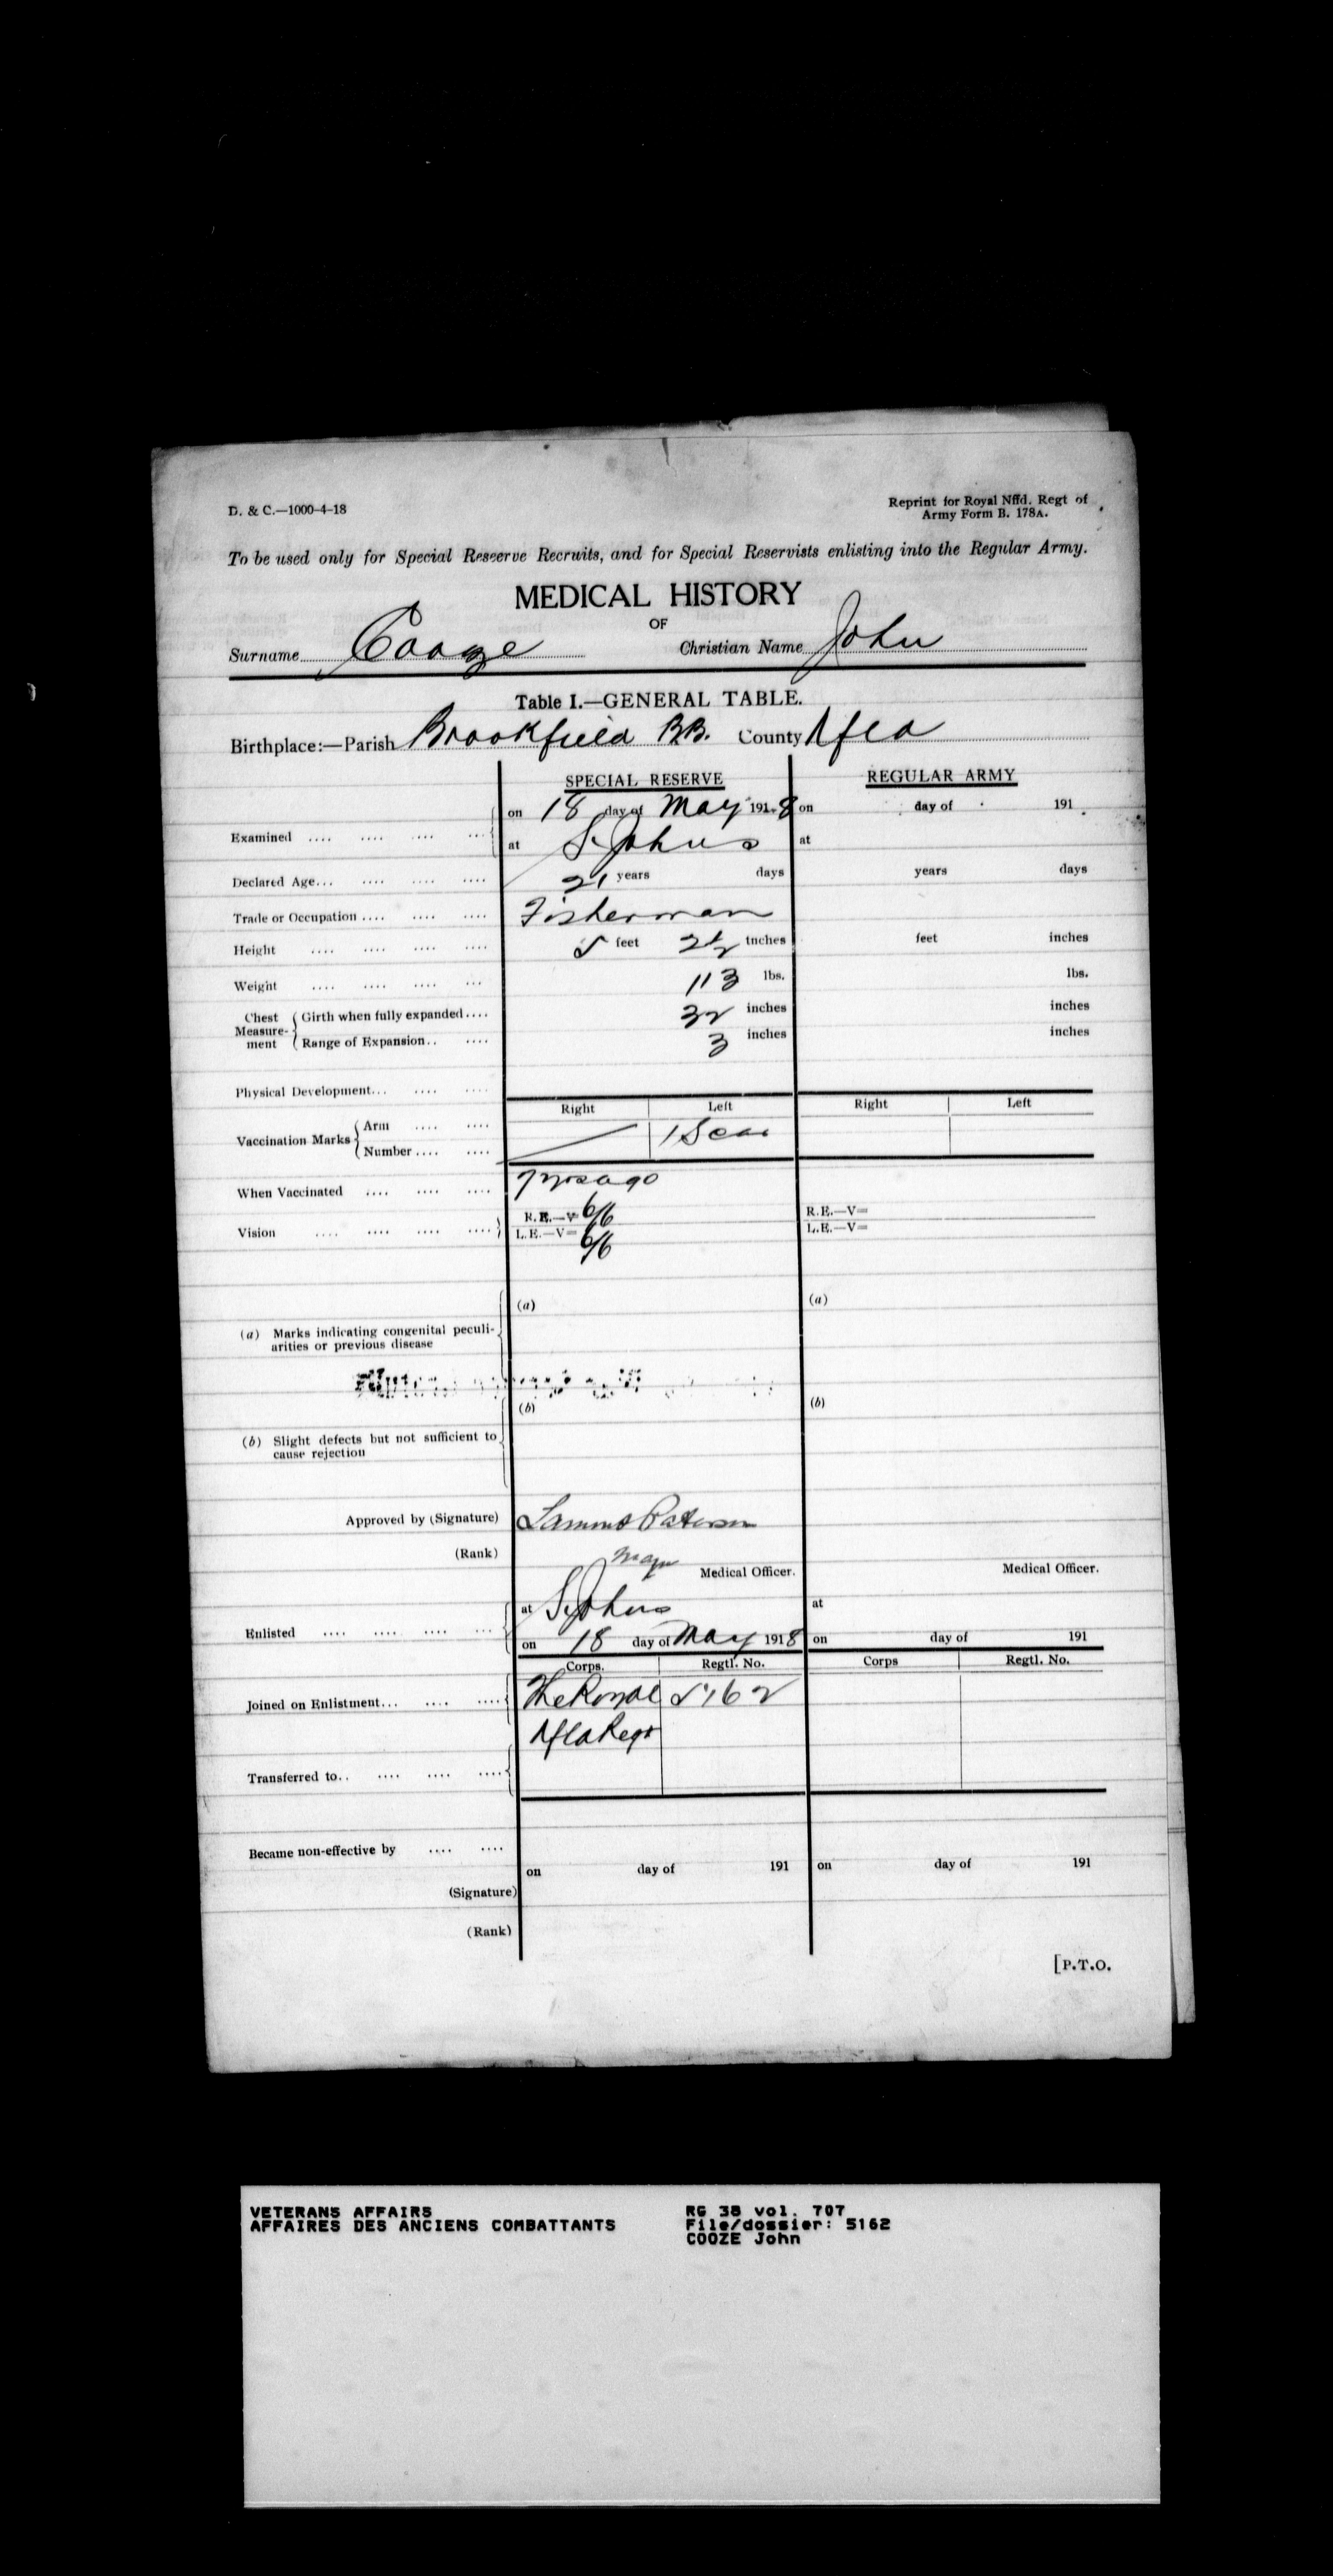 D. & C.—1000-4-18
Reprint for Royal Nffd. Regt of
Army Form B. 178A.
To be used only for Special Reserve Recruits, and for Special Reservists enlisting into the Regular Army.
MEDICAL HISTORY
OF
Surname Cooze Christian Name John
Table I.—GENERAL TABLE.
Birthplace:—Parish Brookfield BB. County Nfld
SPECIAL RESERVE REGULAR ARMY
on 18 day of May 1918 on day of 191
Examined .... .... .... ...
at St Johns at
Declared Age... .... .... .... 21 years days years days
Trade or Occupation .... .... .... Fisherman
Height .... .... .... .... 5 feet 2½ inches feet inches
Weight .... .... .... ... 113 lbs. lbs.
Chest Measurement Girth when fully expanded.... 32 inches inches
Range of Expansion.. .... 3 inches inches
Physical Development... .... ....
Right Left Right Left
Vaccination Marks Arm .... .... 1 Scar
Number .... ....
When Vaccinated .... .... .... 7 yrs ago
Vision .... .... .... ....
R.E.—V= 6/6 R.E.—V=
L.E.—V= 6/6 L.E.—V=
(a) (a)
(a) Marks indicating congenital peculi-
arities or previous disease
(b) (b)
(b) Slight defects but not sufficient to
cause rejection
Approved by (Signature) Lamont Paterson
(Rank) Major
Medical Officer. Medical Officer.
at St Johns at
Enlisted .... .... .... ...
on 18 day of May 1918 on day of 191
Corps. Regtl. No. Corps Regtl. No.
Joined on Enlistment... .... .... The Royal 5162
Nfld Regt
Transferred to.. .... .... ....
Became non-effective by .... ....
on day of 191 on day of 191
(Signature)
(Rank)
[P.T.O.
VETERANS AFFAIRS RG 38 vol. 707
AFFAIRES DES ANCIENS COMBATTANTS File/dossier: 5162
COOZE John